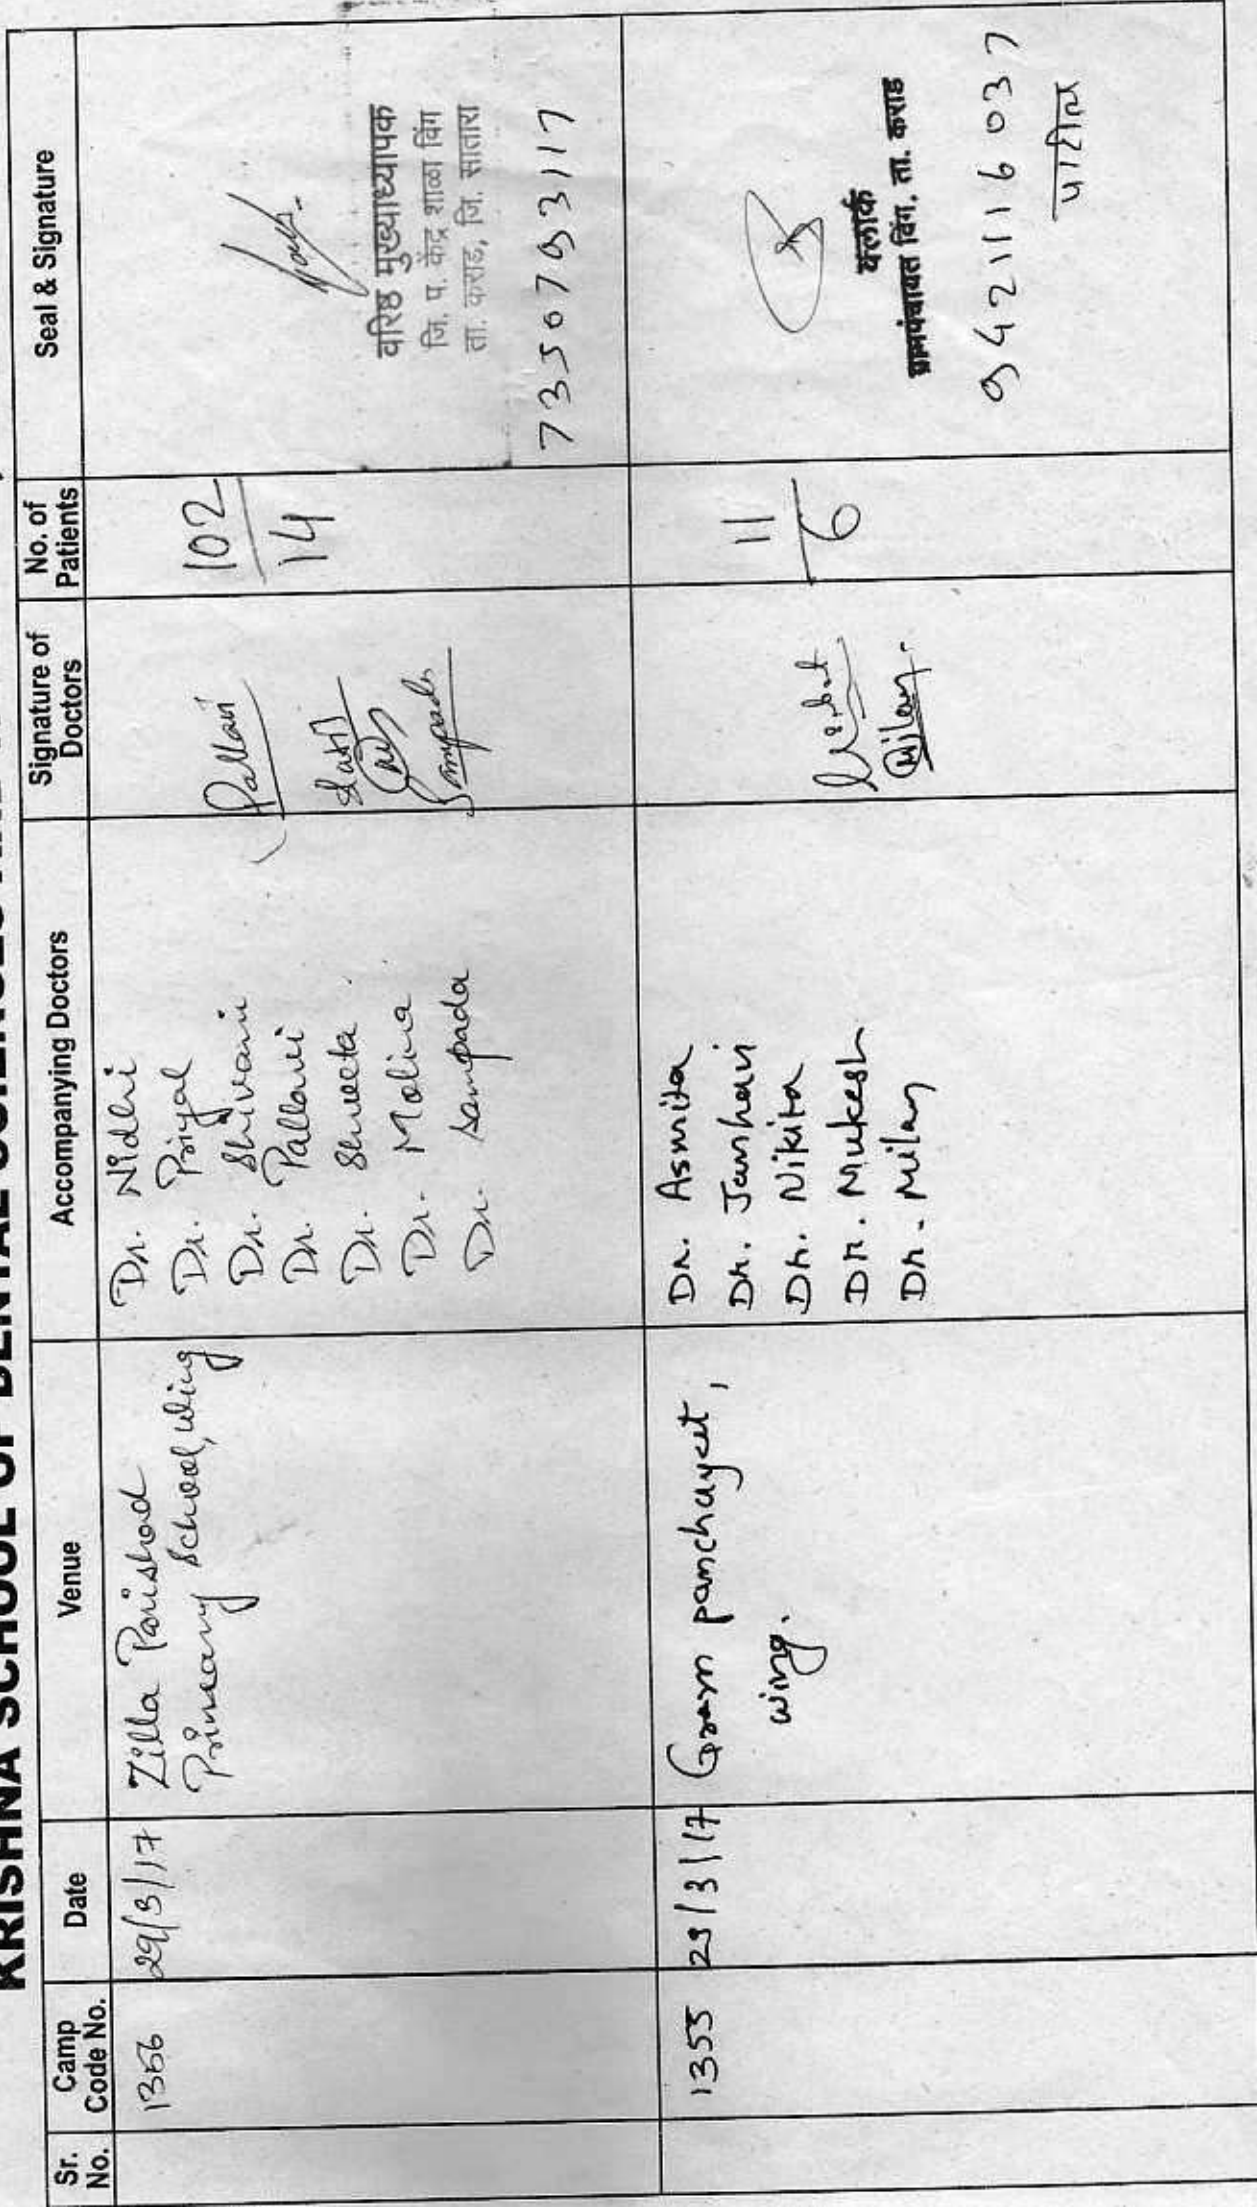 KRISHNA SCHOOL OF DENTAL SCIENCES
Sr. No.
Camp Code No.
Date
Venue
Accompanying Doctors
Signature of Doctors
No. of Patients
Seal & Signature
1356
29/3/17
Zilla Parishad
Primary School, Wing
Dr. Nidhi
Dr. Priyal
Dr. Shivani
Dr. Pallavi
Dr. Shweta
Dr. Molina
Dr. Sampada
Pallavi
Sampada
102
14
वरिष्ठ मुख्याध्यापक
जि. प. केंद्र शाळा विंग
ता. कराड, जि. सातारा
7350793117
1355
29/3/17
Gram panchayat,
wing.
Dr. Asmita
Dr. Janhavi
Dr. Nikita
Dr. Mukesh
Dr. Milan
Milan
11
6
क्लार्क
ग्रामपंचायत विंग, ता. कराड
9421116037
पाटील